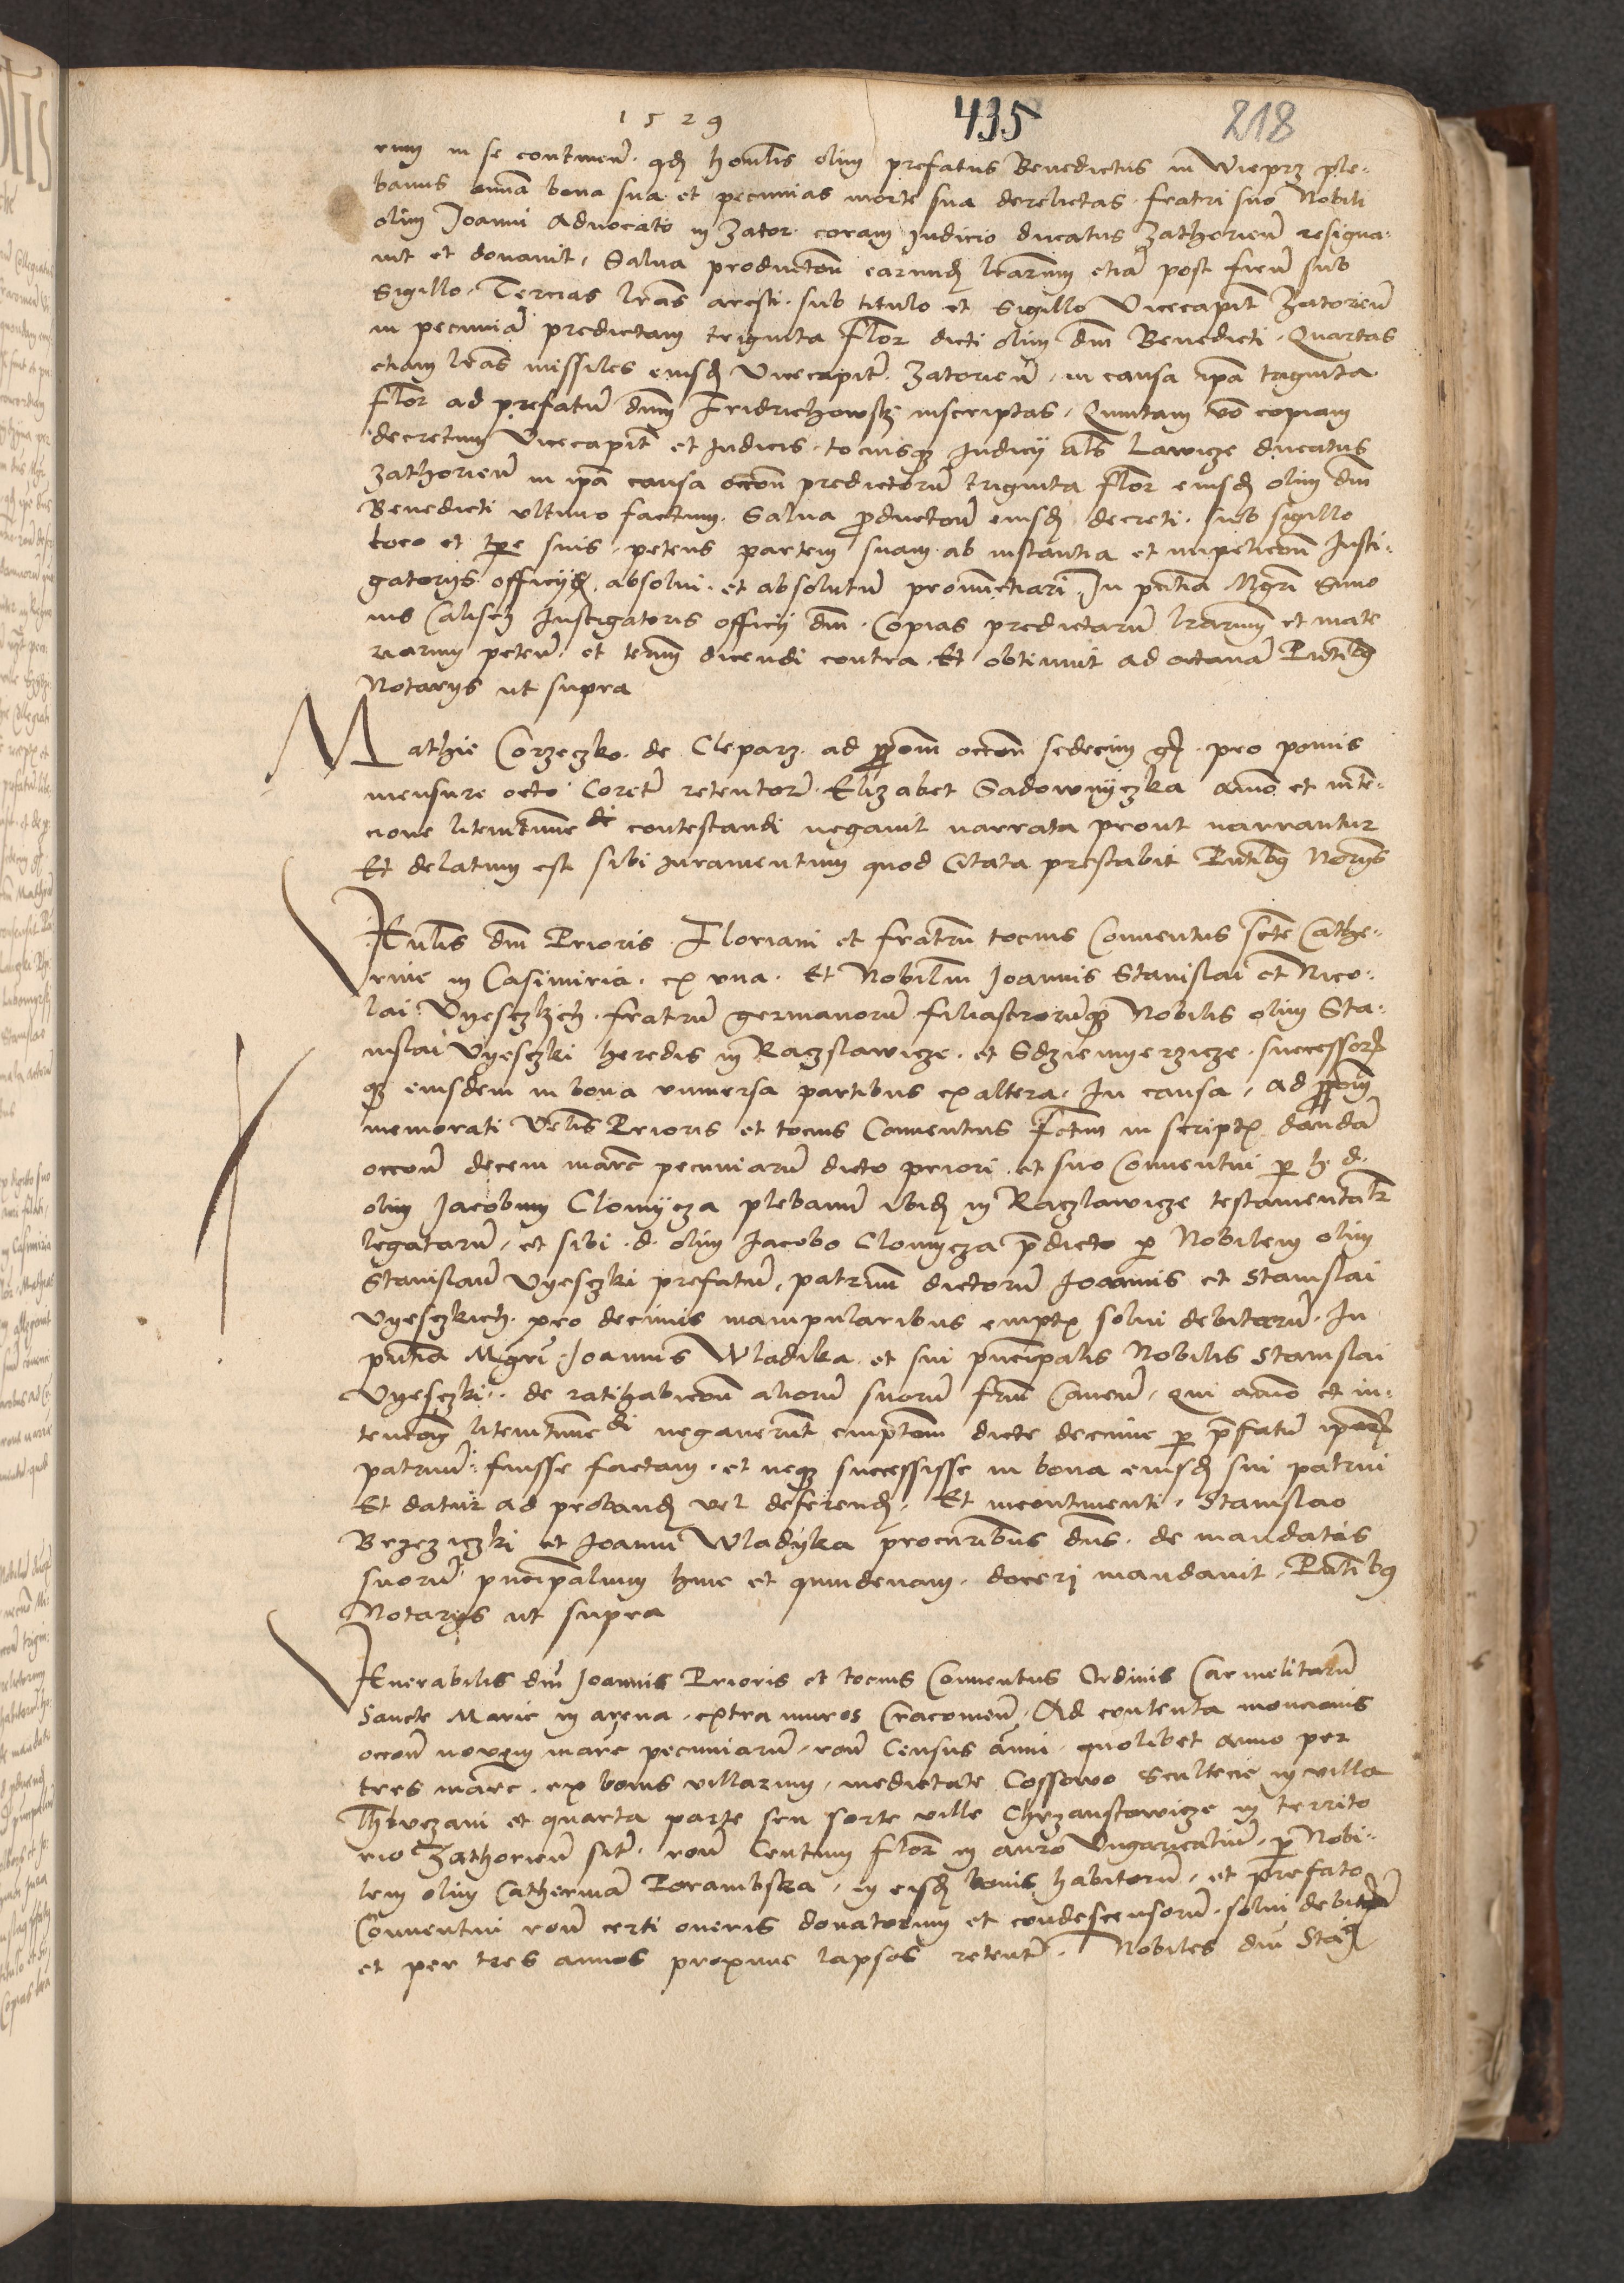 1529
435
218
rum in se continen̄. qd̄ honlis olim prefatus Benedictus in Wieprz ple-
banus omīa bona sua et pecunias morte sua derelictas fratri suo Nobili
olim Joanni Advocato in Zator coram Judicio ducatus Zathorien̄ resigna-
uit et donauit, Salua productōn earund̄ lrārum etiā post fieñ sub
Sigillo. Tercias lrās aresti sub titulo et Sigillo Vicecapit̄ Zatorien̄
in pecuniā predictam triginta Flor dicti olim dnī Benedicti, Quartas
etiam lrās missiles eiusd̄ Vicecapit̄ Zatorien̄, in causa ipā triginta
Flor ad prefatū dnm̄ Fridrichowskj inscriptas, Quintam vō copiam
decretum Vicecapit̄ et Judicis, tociusqz Judicij als̄ Lawicze ducatus
Zathorien̄ in ipā causa occōn predictorū triginta Flor eiusd̄ olim dnī
Benedicti vltimo factum. Salua productōn eiusd̄ decreti. sub sigillo
loco et tpe suis, petens partem suam ab instantia et impeticōn Insti-
gatorijs officijq̄ absolui et absolutū pronunctiari. In pn̄tia Mgrī Simo
nis Calisch Instigatoris officij dnī. Copias predictarū lrārum et mate
riarum peten̄. et term̄ dicendi contra. Et obtinuit ad octauā Pn̄tibq
Notarijs ut supra
Mathie Corzeczko de Cleparz ad ꝓpōm occōn sedecim gr̄. pro pomis
mensure octo Coret̄ retentor̄. Elizabet Sadownyczka aīmo et inte-
cione litem tīme di contestandi negauit narrata prout narrantur
Et delatum est sibi iuramentum quod Citata prestabit Pn̄tibq Nōrijs
VEnlis dnī Prioris Floriani et fratrū tocius Conuentus scte Cathe-
rine in Casimiria. ex vna. Et Nobiliū Joannis Stanislai et Nico-
lai Vyesczkich fratrū germanorū filiastrorūqz Nobilis olim Sta-
nislai Vyesczki heredis in Raczslawicze et Sdziemyerzicze, successor̄
qz eiusdem in bona vniuersa partibus ex altera. In causa, ad ꝓpōm
memorati Vēlis Prioris et tocius Conuentus Fctm̄ in scriptx dandā
occōn decem marc̄ pecuniarū dicto priori et suo Conuentui per h. d.
olim Jacobum Clomycza plebanū ibid̄ in Raczlawicze testamentalr̄
legatarū, et sibi d. olim Jacobo Clomycza p̄dicto per Nobilem olim
Stanislaū Vyesczki prefatū, patruū dictorū Joannis et Stanislai
Vyesczkich. pro decimis manipularibus emptx solui debitarū. In
pn̄tia Mgrī Joannis Wladika et sui prīncipalis Nobilis Stanislai
Vyesczki. de ratihabicōn aliorū suorū frm̄ Cauen̄, qui aīmo et in-
tencōn litem tīme di negauerūt emptōm dicte decime per p̄fatū ipor̄
patruū fuisse factam, et neqz successisse in bona eiusd̄ sui patrui
Et datur ad proband̄ vel deferend̄. Et incontinenti, Stanislao
Brzeziczki et Joanni Wladyka procurībus dns̄. de mandatis
suorū prīncipalium hinc et quindenam. doceri mandauit, Pn̄tibq
Notarijs ut supra
VEnerabilis dnī Joannis Prioris et tocius Conuentus Ordinis Carmelitarū
Sancte Marie in arena, extra muros Cracouien̄, Ad contenta monicionis
occōn nouem marc̄ pecuniarū, rōn Census annī, quolibet anno per
tres marc̄. ex bonis villarum, medietate Cossowo Scultecie in villa
et quarta parte seu sorte ville Chrzanstowicze in territo
rio Zathorien̄ sit̄. rōn Centum Flor̄ in auro Vngaricaliū, per Nobi-
lem olim Catherinā Porambska, in eisd̄ bonis habitorū, et prefato
Conuentui rōn certi oneris donatorum et condescensorū. solui debit
et per tres annos proxime lapsos retent̄. Nobiles dnī